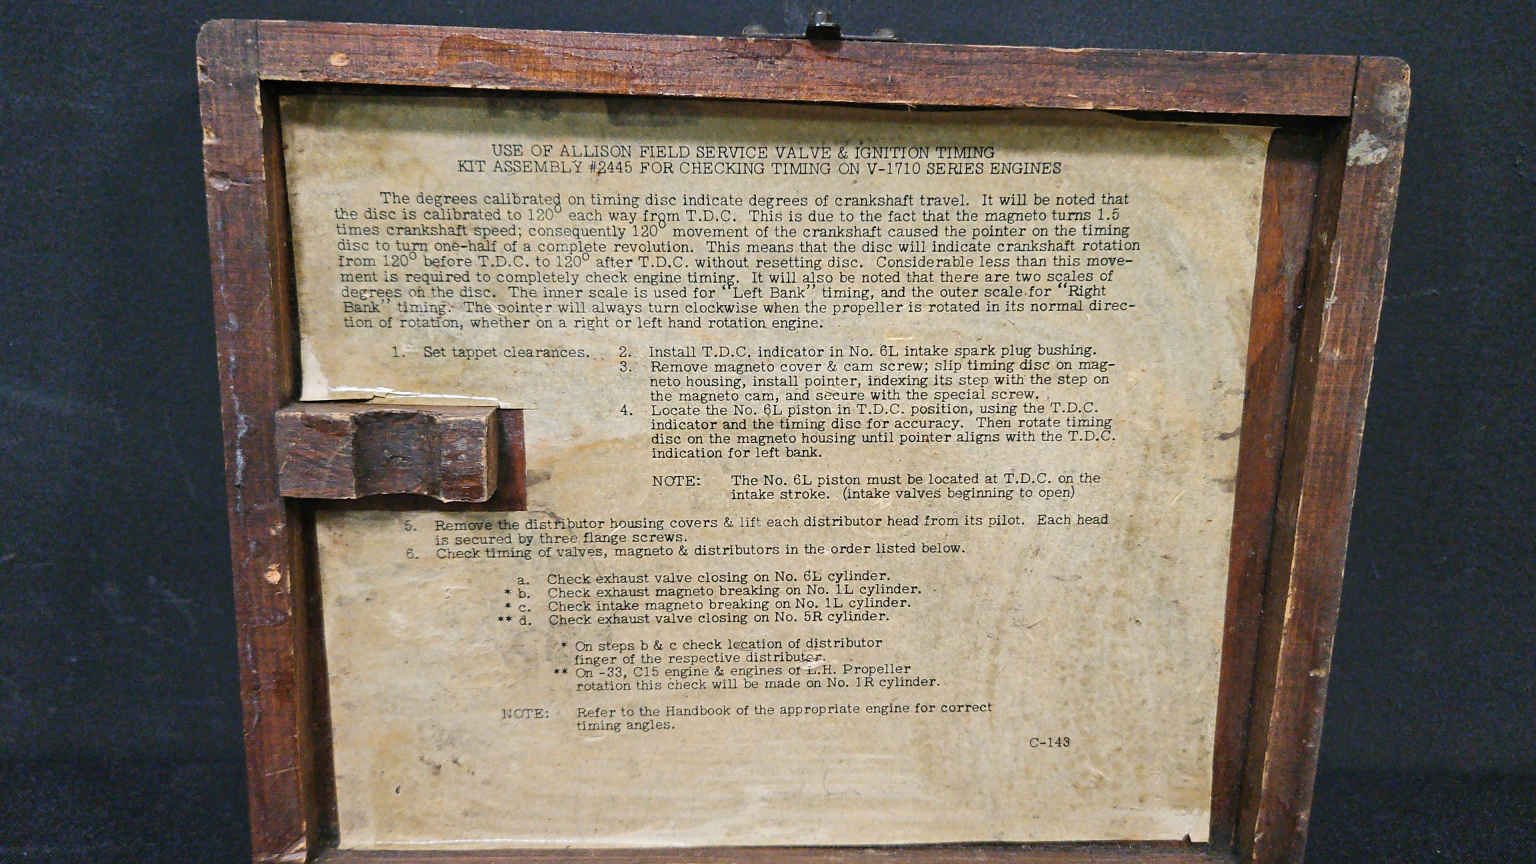 USE OF ALLISON FIELD SERVICE VALVE & IGNITION TIMING
KIT ASSEMBLY #2445 FOR CHECKING TIMING ON V-1710 SERIES ENGINES
The degrees calibrated on timing disc indicate degrees of crankshaft travel. It will be noted that
the disc is calibrated to 120° each way from T.D.C. This is due to the fact that the magneto turns 1.5
times crankshaft speed; consequently 120° movement of the crankshaft caused the pointer on the timing
disc to turn one-half of a complete revolution. This means that the disc will indicate crankshaft rotation
from 120° before T.D.C. to 120° after T.D.C. without resetting disc. Considerable less than this move-
ment is required to completely check engine timing. It will also be noted that there are two scales of
degrees on the disc. The inner scale is used for "Left Bank" timing, and the outer scale for "Right
Bank" timing. The pointer will always turn clockwise when the propeller is rotated in its normal direc-
tion of rotation, whether on a right or left hand rotation engine.
1. Set tappet clearances.
2. Install T.D.C. indicator in No. 6L intake spark plug bushing.
3. Remove magneto cover & cam screw; slip timing disc on mag-
neto housing, install pointer, indexing its step with the step on
the magneto cam, and secure with the special screw.
4. Locate the No. 6L piston in T.D.C. position, using the T.D.C.
indicator and the timing disc for accuracy. Then rotate timing
disc on the magneto housing until pointer aligns with the T.D.C.
indication for left bank.
NOTE: The No. 6L piston must be located at T.D.C. on the
intake stroke. (intake valves beginning to open)
5. Remove the distributor housing covers & lift each distributor head from its pilot. Each head
is secured by three flange screws.
6. Check timing of valves, magneto & distributors in the order listed below.
a. Check exhaust valve closing on No. 6L cylinder.
* b. Check exhaust magneto breaking on No. 1L cylinder.
* c. Check intake magneto breaking on No. 1L cylinder.
** d. Check exhaust valve closing on No. 5R cylinder.
* On steps b & c check location of distributor
finger of the respective distributer.
** On -33, C15 engine & engines of L.H. Propeller
rotation this check will be made on No. 1R cylinder.
NOTE: Refer to the Handbook of the appropriate engine for correct
timing angles.
C-143